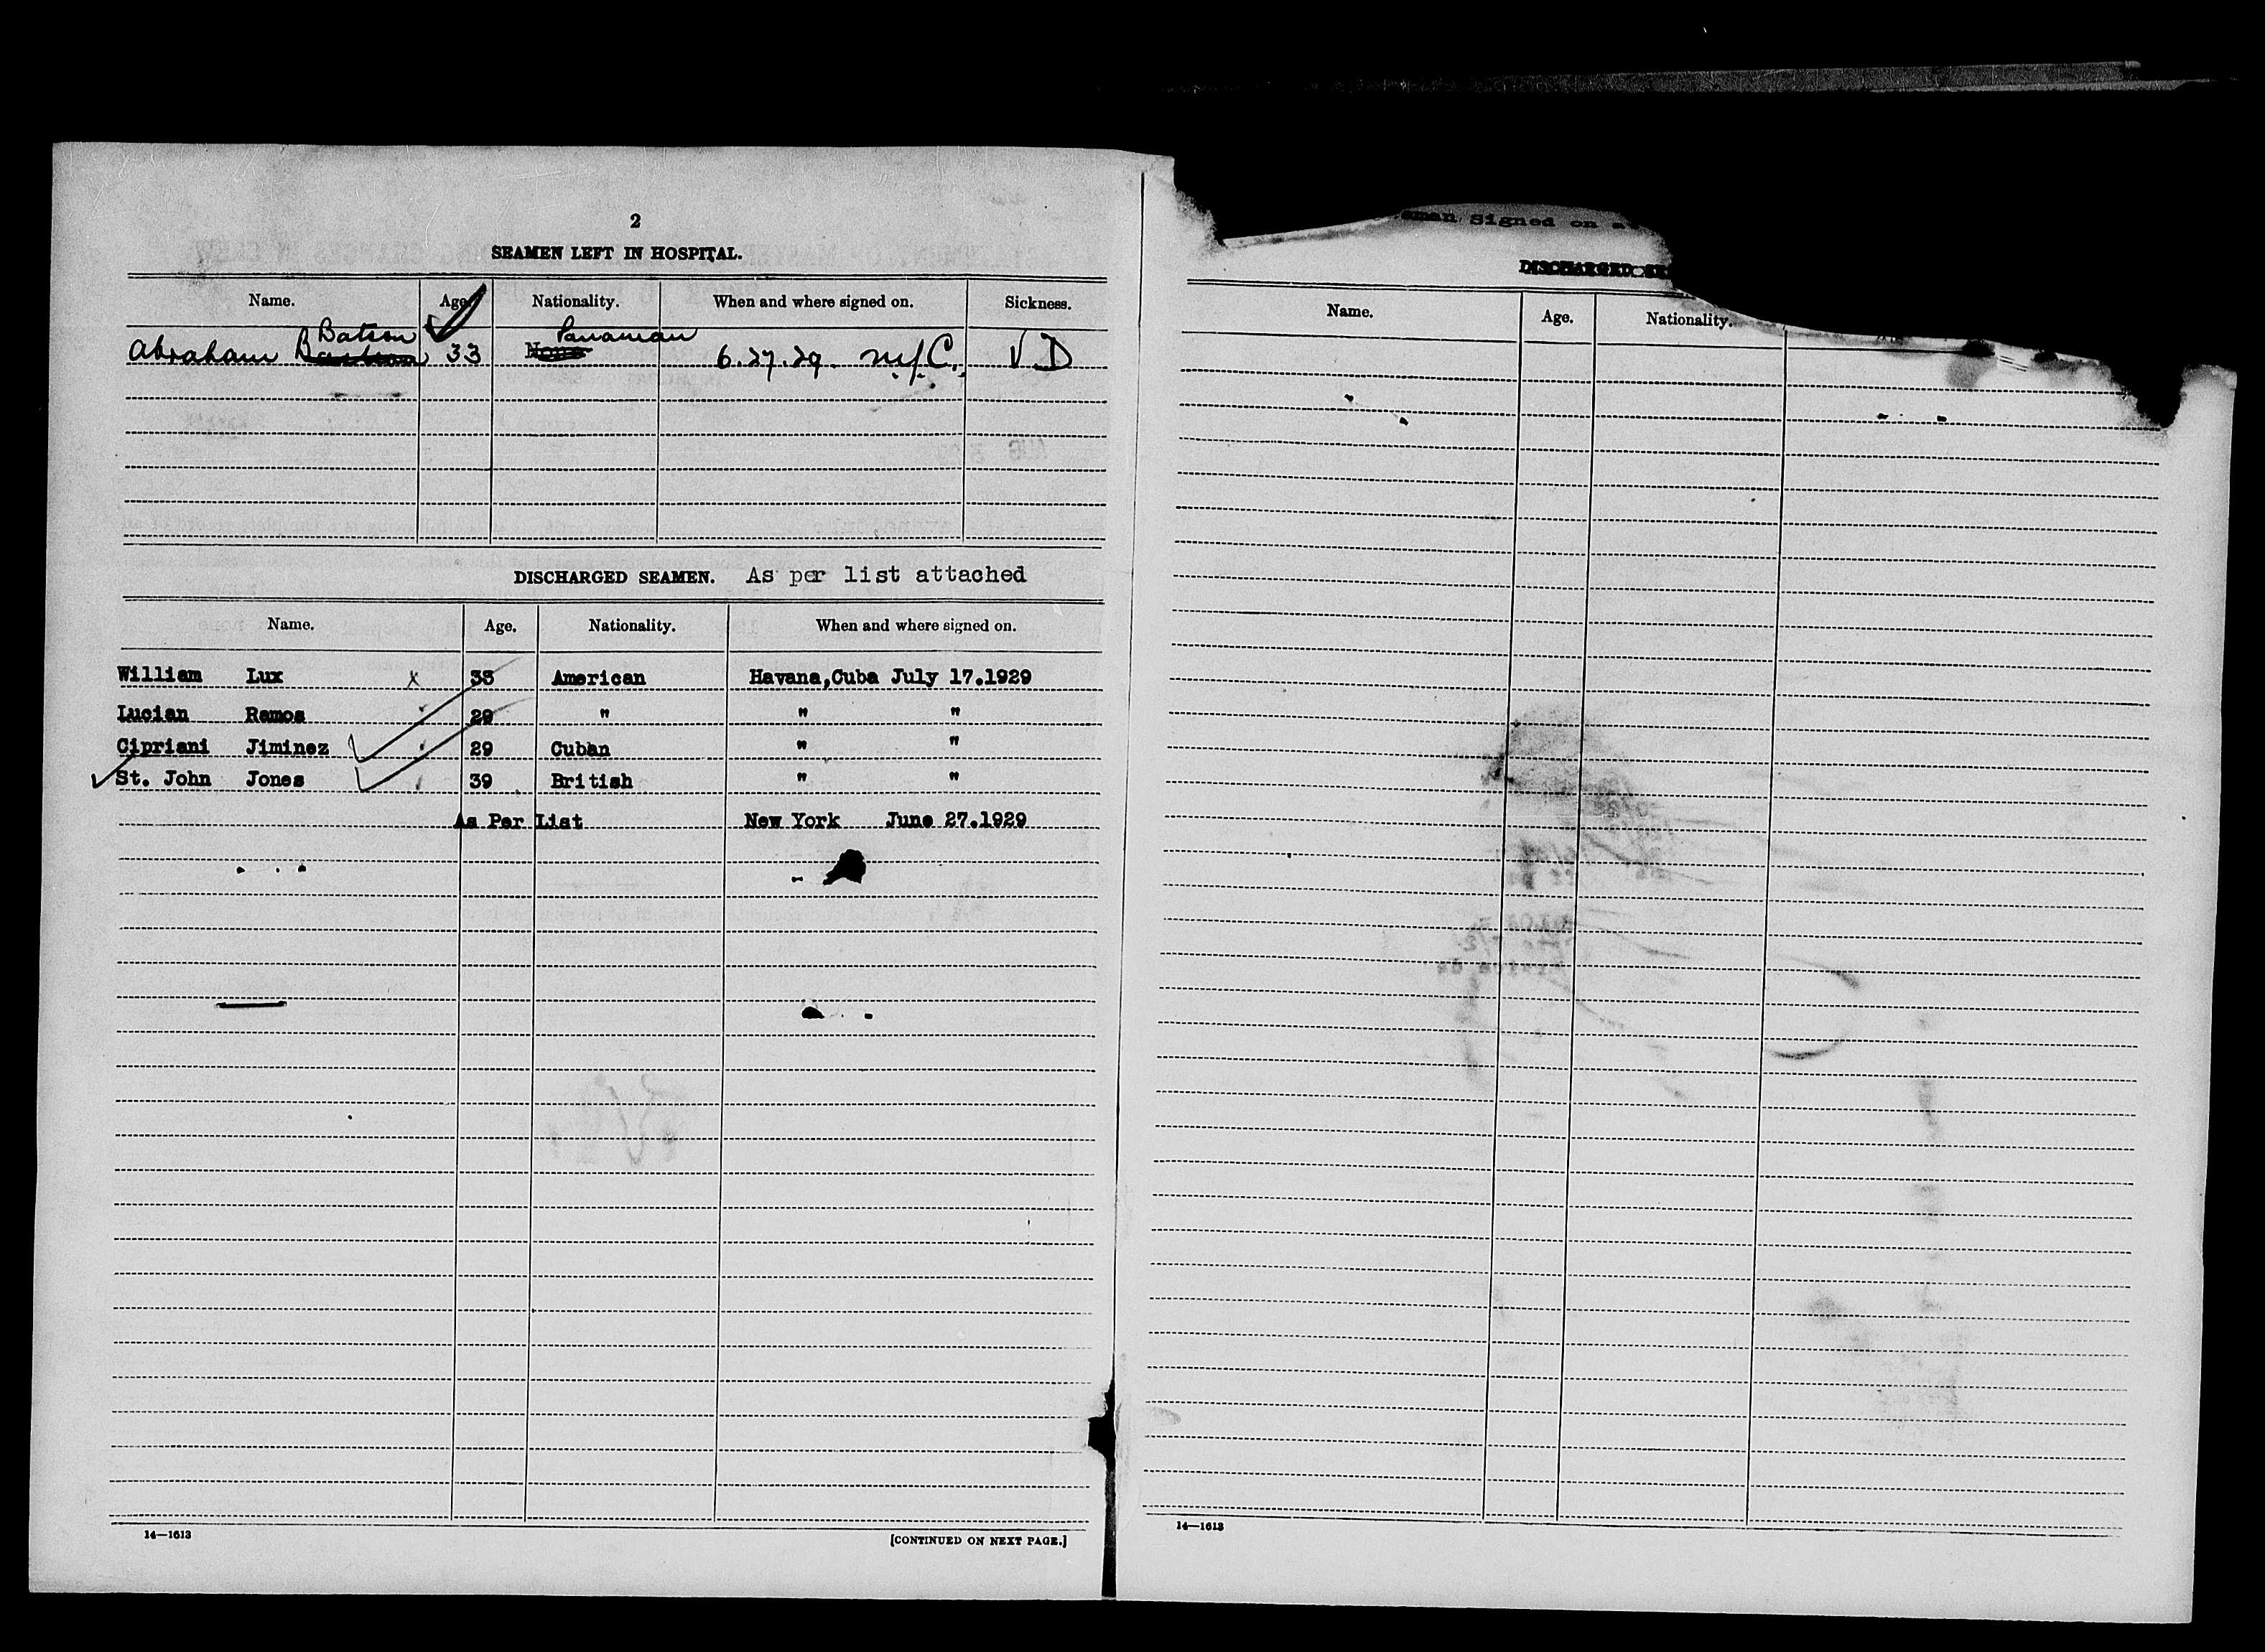 2
SEAMEN LEFT IN HOSPITAL.
Name. Age. Nationality. When and where signed on. Sickness.
Batson Panaman
Abraham 33 None 6.27.29. N.Y.C. V.D
DISCHARGED SEAMEN. As per list attached
Name. Age. Nationality. When and where signed on.
William Lux x 38 American Havana,Cuba July 17.1929
Lucian Ramos 29 " " "
Cipriani Jiminez 29 Cuban " "
St. John Jones 39 British " "
As Per List New York June 27.1929
14—1613
[CONTINUED ON NEXT PAGE.]
Signed on
DISCHARGED SE
Name. Age. Nationality.
14—1613